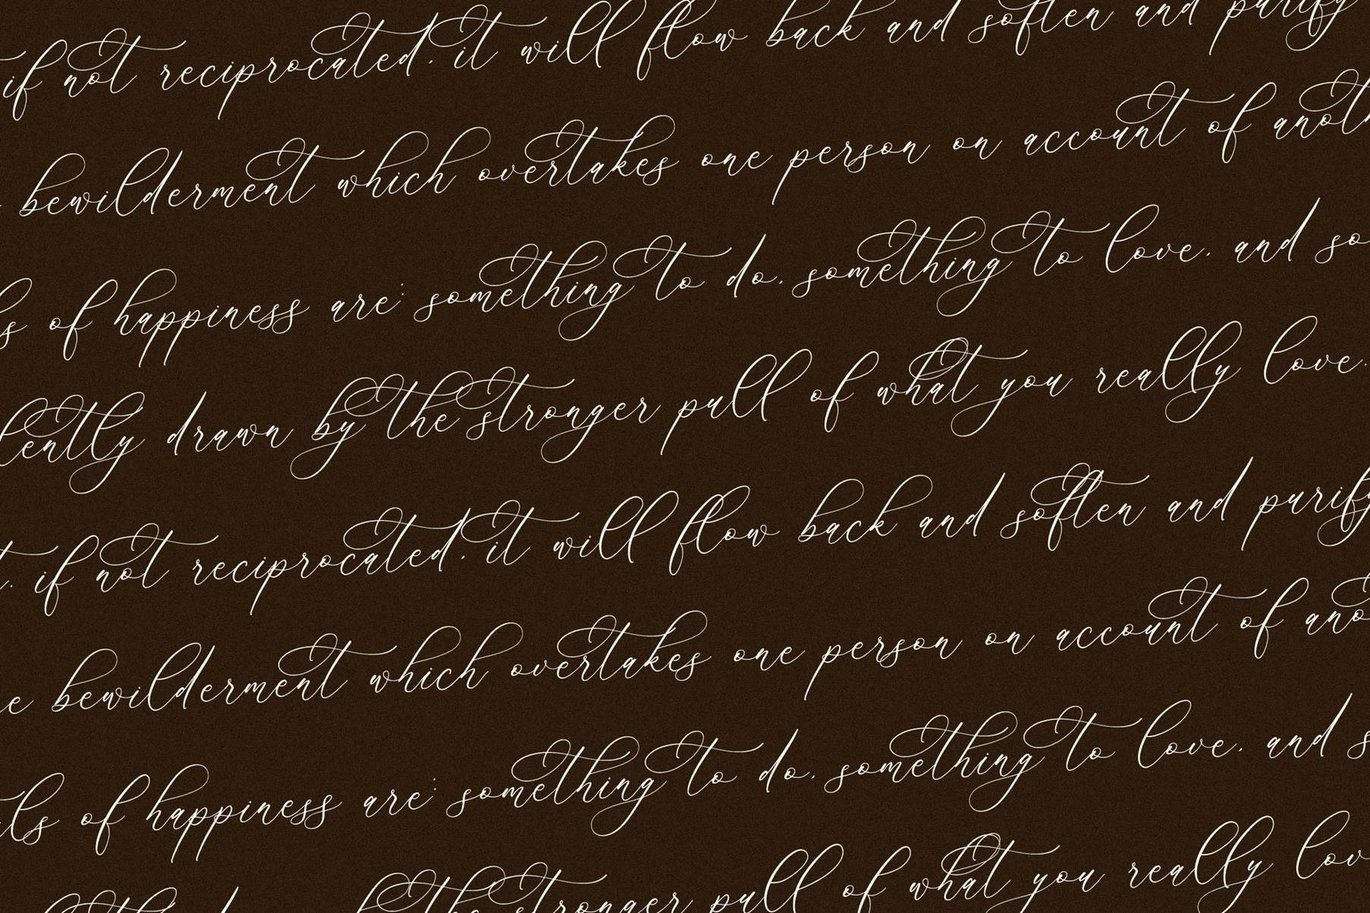 if not reciprocated, it will flow back and soften and purify
bewilderment which overtakes one person on account of anot
ls of happiness are: something to do, something to love, and so
lently drawn by the stronger pull of what you really love.
if not reciprocated, it will flow back and soften and purify
e bewilderment which overtakes one person on account of ano
als of happiness are: something to do, something to love, and s
the stronger pull of what you really lov